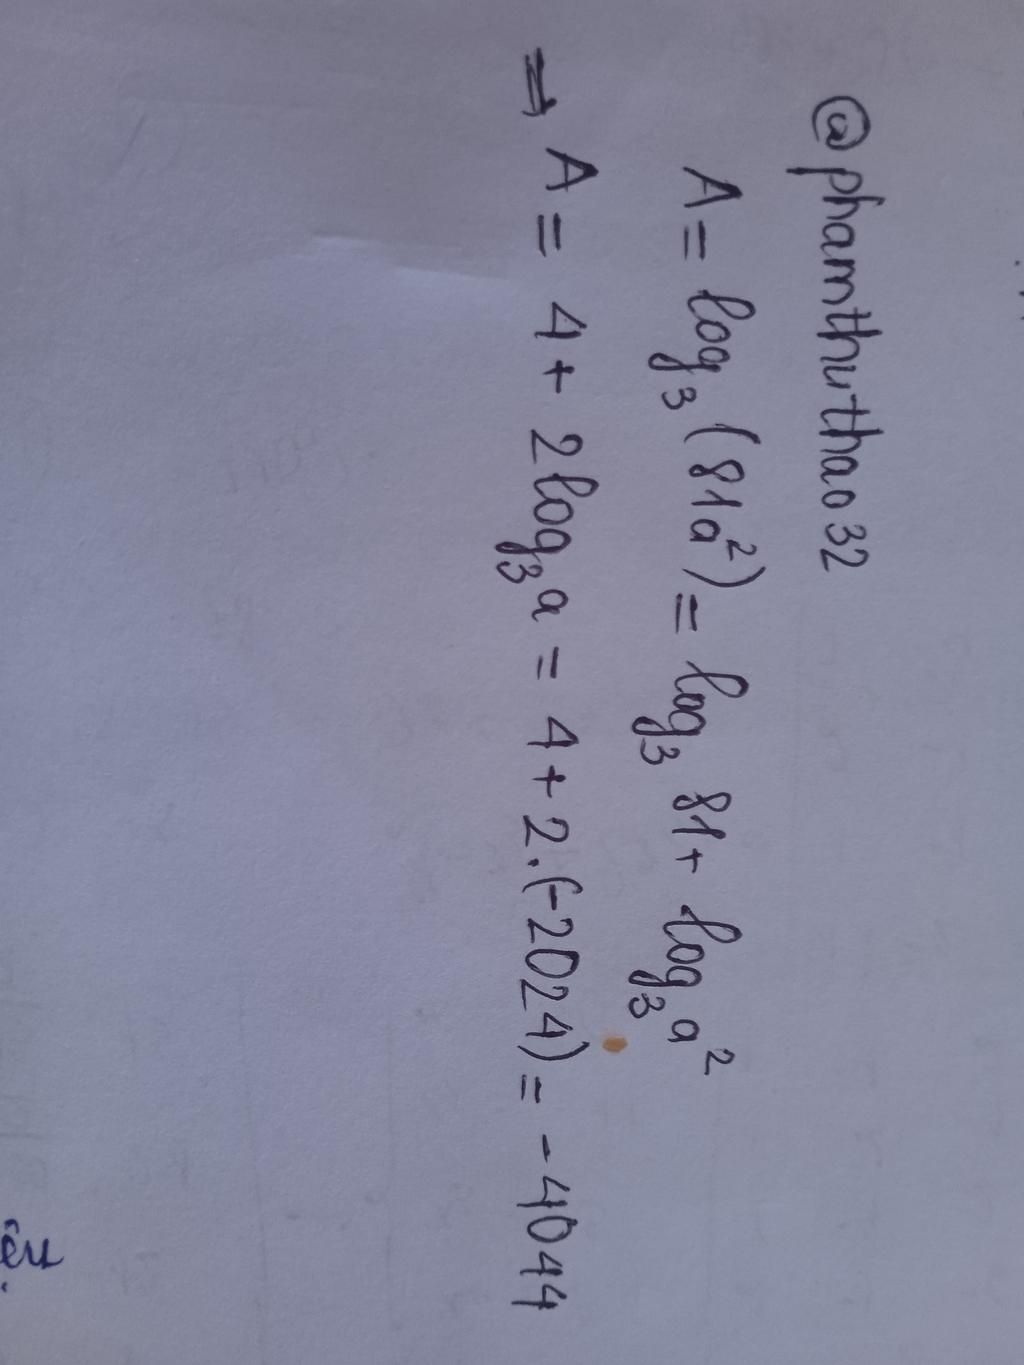 @phamthuthao32
A = log₃(81a²) = log₃ 81 + log₃ a²
⇒ A = 4 + 2log₃a = 4 + 2.(-2024) = -4044